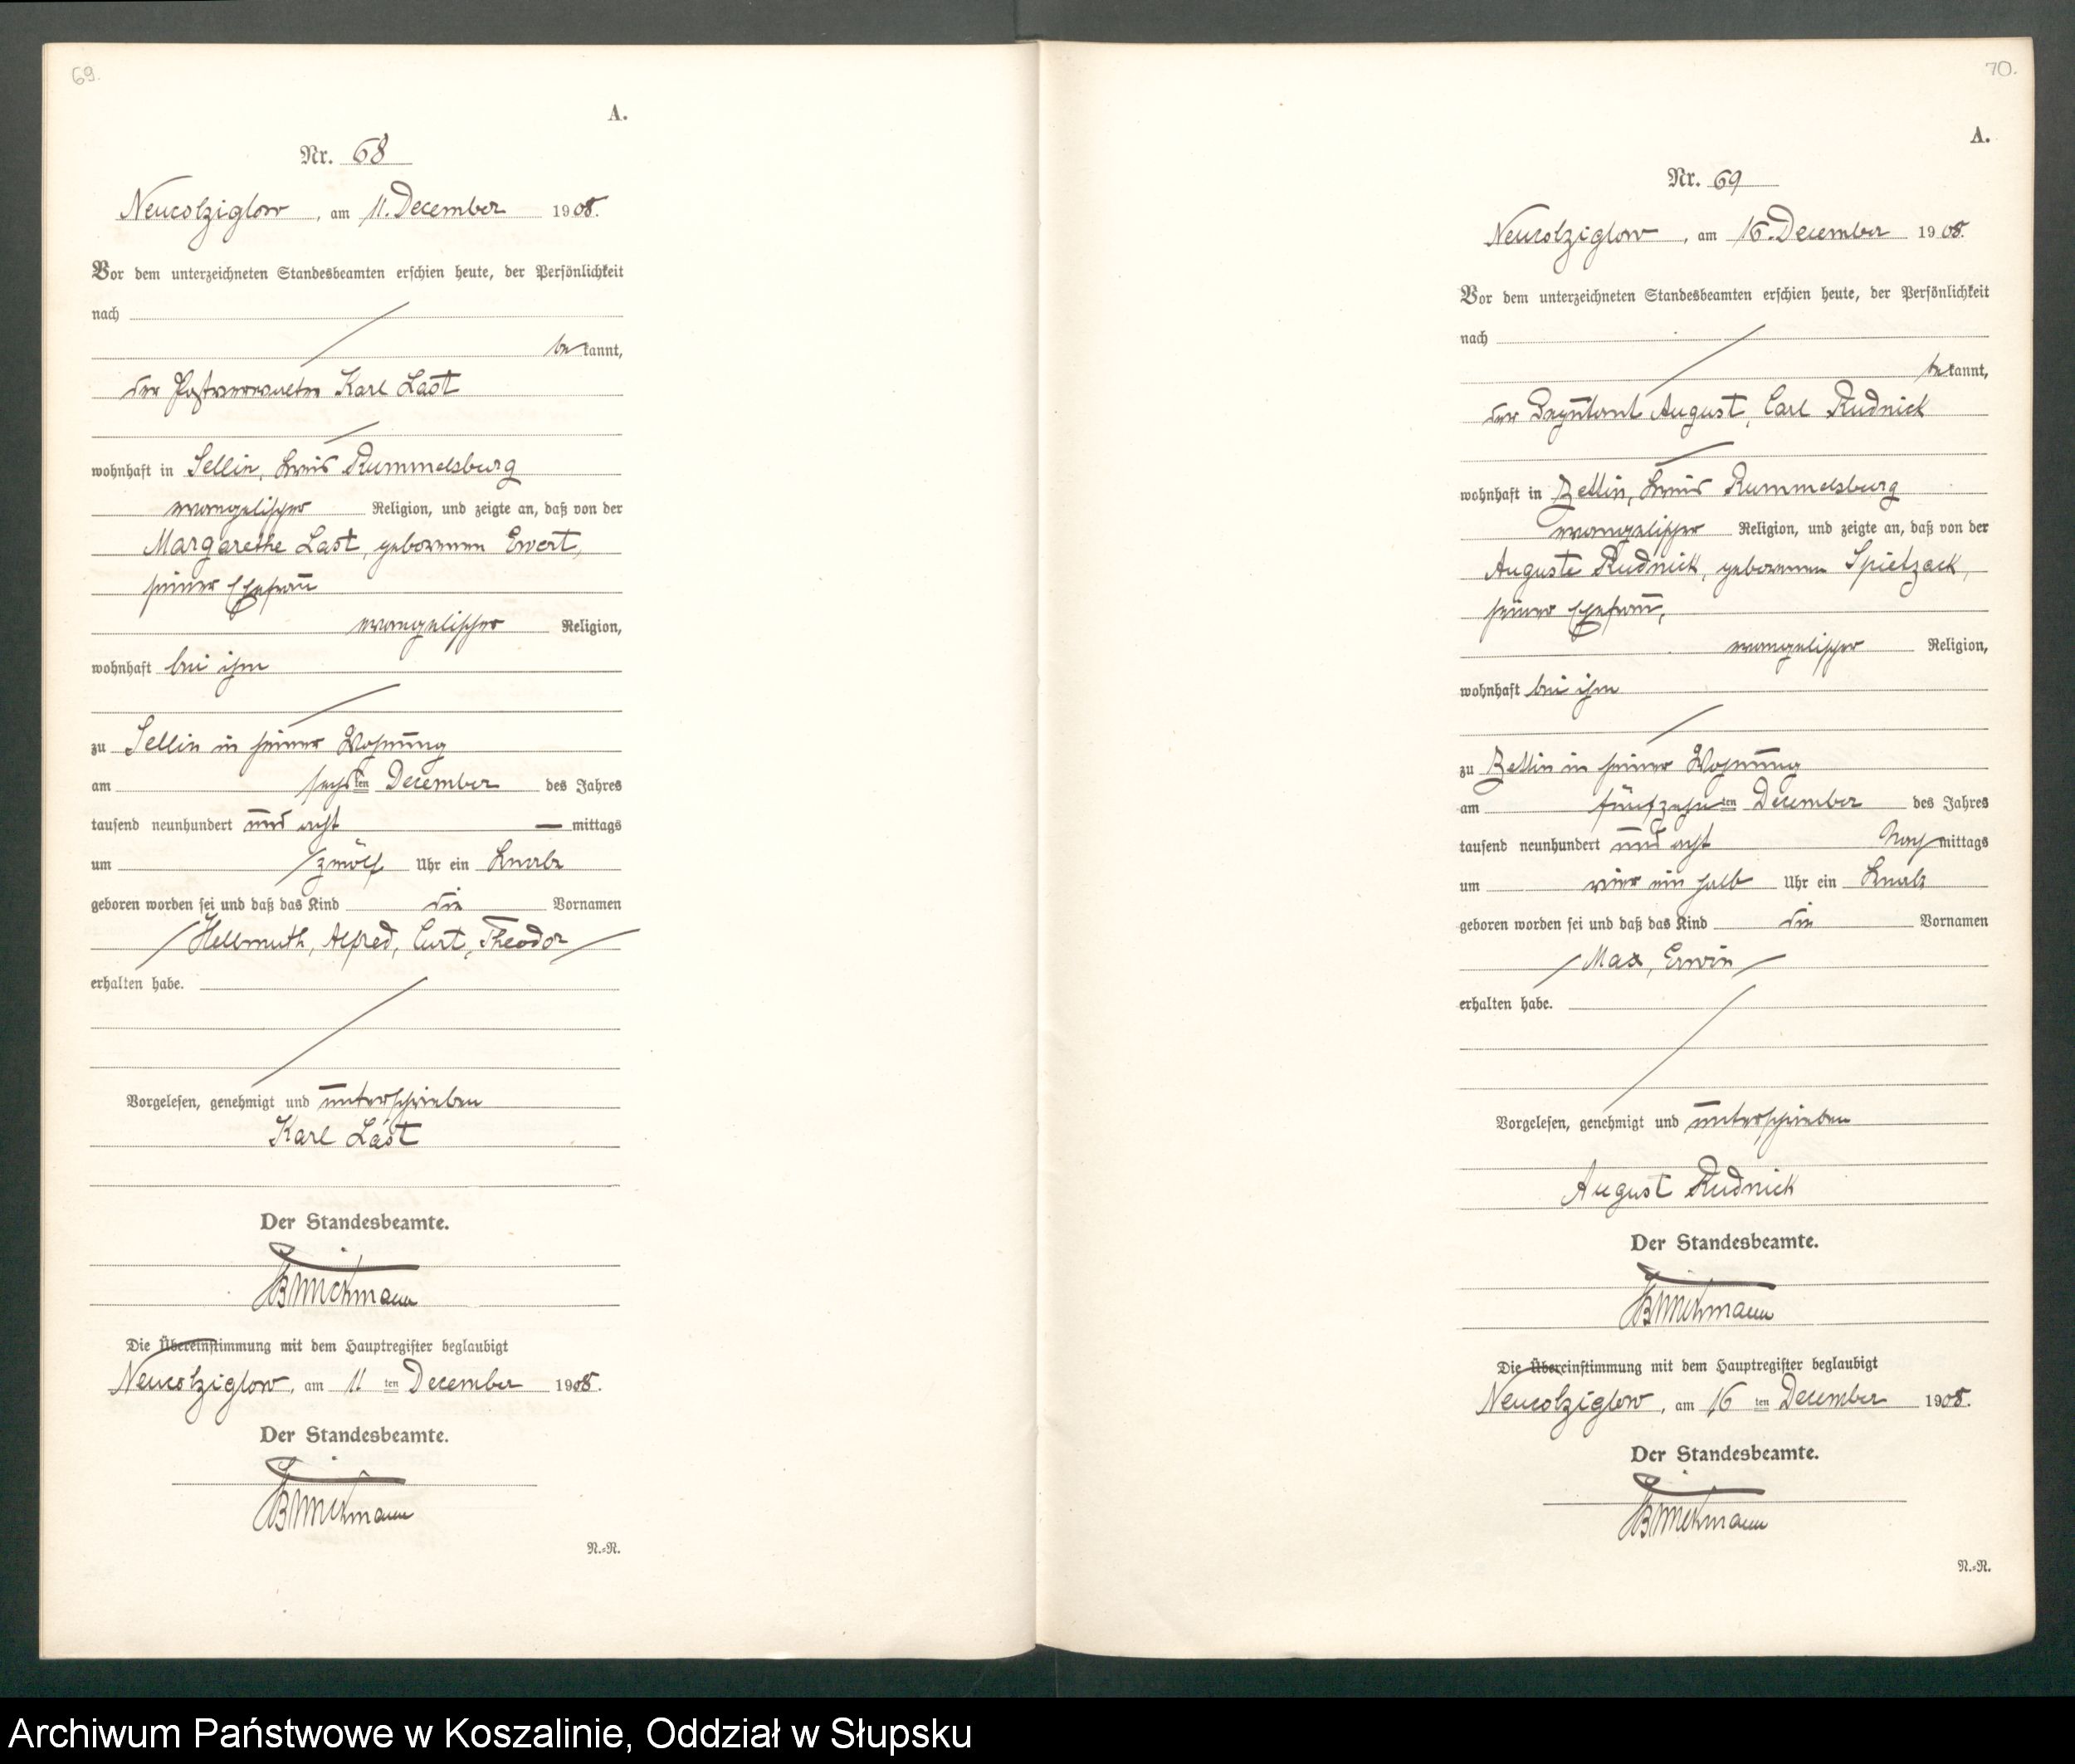 69.
A.
Nr. 68
Neucolziglow, am 11. December 1908.
Vor dem unterzeichneten Standesbeamten erschien heute, der Persönlichkeit
nach
bekannt,
der Postverwalter Karl Last
wohnhaft in Sellin, Kreis Rummelsburg
evangelischer Religion, und zeigte an, daß von der
Margarethe Last, geborenen Ewert,
seiner Ehefrau
evangelischer Religion,
wohnhaft bei ihm
zu Sellin in seiner Wohnung
am sechsten December des Jahres
tausend neunhundert und acht — mittags
um zwölf Uhr ein Knabe
geboren worden sei und daß das Kind die Vornamen
Hellmuth, Alfred, Curt, Theodor
erhalten habe.
Vorgelesen, genehmigt und unterschrieben
Karl Last
Der Standesbeamte.
Die Übereinstimmung mit dem Hauptregister beglaubigt
Neucolziglow, am 11 ten December 1908.
Der Standesbeamte.
N.=N.
70.
A.
Nr. 69
Neucolziglow, am 16. December 1908.
Vor dem unterzeichneten Standesbeamten erschien heute, der Persönlichkeit
nach
bekannt,
der August, Carl Rudnick
wohnhaft in Zettin, Kreis Rummelsburg
evangelischer Religion, und zeigte an, daß von der
Auguste Rudnick, geborenen Spietzack,
seiner Ehefrau,
evangelischer Religion,
wohnhaft bei ihm
zu Zettin in seiner Wohnung
am fünfzehnten December des Jahres
tausend neunhundert und acht Nachmittags
um vier ein halb Uhr ein Knabe
geboren worden sei und daß das Kind die Vornamen
Max, Erwin
erhalten habe.
Vorgelesen, genehmigt und unterschrieben
August Rudnick
Der Standesbeamte.
Die Übereinstimmung mit dem Hauptregister beglaubigt
Neucolziglow, am 16 ten December 1908.
Der Standesbeamte.
N.=N.
Archiwum Państwowe w Koszalinie, Oddział w Słupsku